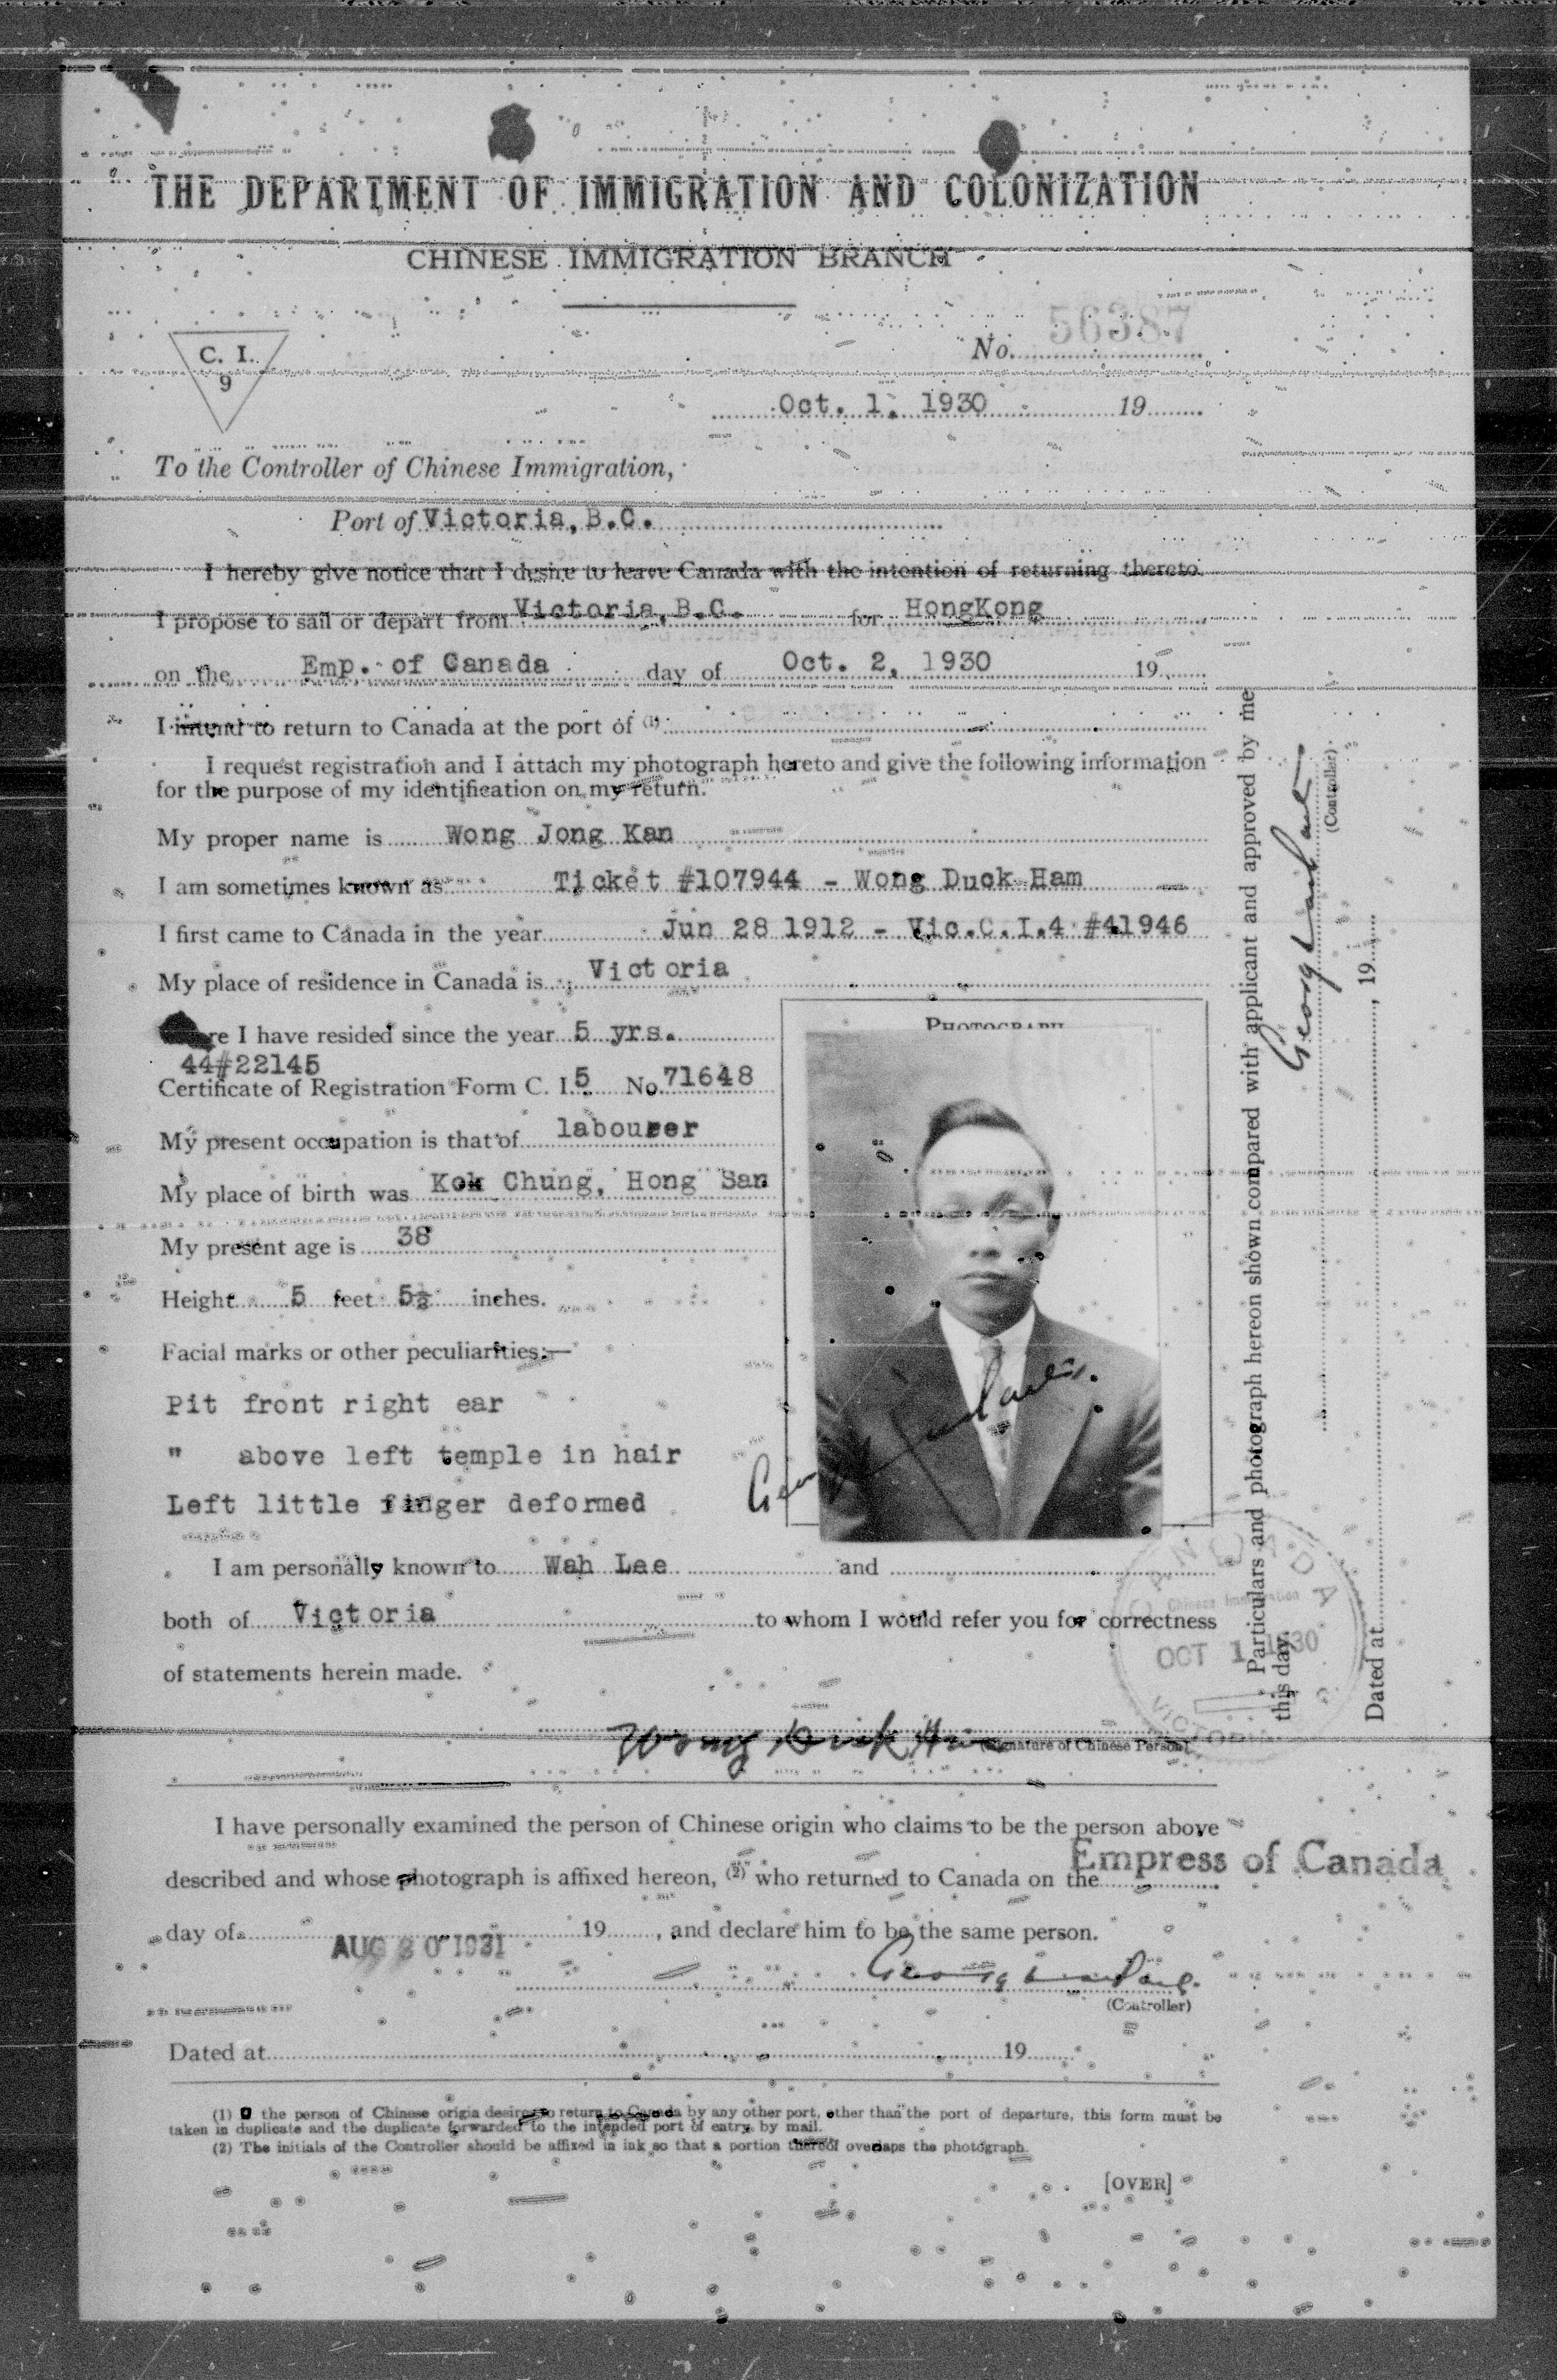 THE DEPARTMENT OF IMMIGRATION AND COLONIZATION
CHINESE IMMIGRATION BRANCH
C. I.
9
No. 56387
Oct. 1, 1930 19
To the Controller of Chinese Immigration,
Port of Victoria, B.C.
I hereby give notice that I desire to leave Canada with the intention of returning thereto.
I propose to sail or depart from Victoria, B.C. for HongKong
on the Emp. of Canada day of Oct. 2, 1930 19
I intend to return to Canada at the port of (1)
I request registration and I attach my photograph hereto and give the following information
for the purpose of my identification on my return.
My proper name is Wong Jong Kan
I am sometimes known as Ticket #107944 - Wong Duck Ham
I first came to Canada in the year Jun 28 1912 - Vic.C.I.4 #41946
My place of residence in Canada is Victoria
re I have resided since the year 5 yrs.
44#22145
Certificate of Registration Form C. I. 5 No. 71648
My present occupation is that of labourer
My place of birth was Kok Chung, Hong San
My present age is 38
Height 5 feet 5½ inches.
Facial marks or other peculiarities:—
Pit front right ear
" above left temple in hair
Left little finger deformed
PHOTOGRAPH
I am personally known to Wah Lee and
both of Victoria to whom I would refer you for correctness
of statements herein made.
Wong
(Signature of Chinese Person)
CANADA
Chinese Immigration
OCT 1 1930
VICTORIA
Particulars and photograph hereon shown compared with applicant and approved by me
this day
(Controller)
Dated at , 19
I have personally examined the person of Chinese origin who claims to be the person above
described and whose photograph is affixed hereon, (2) who returned to Canada on the Empress of Canada
day of AUG 30 1931 19 , and declare him to be the same person.
(Controller)
Dated at 19
(1) the person of Chinese origin desires to return to Canada by any other port, other than the port of departure, this form must be
taken in duplicate and the duplicate forwarded to the intended port of entry by mail.
(2) The initials of the Controller should be affixed in ink so that a portion thereof overlaps the photograph.
[OVER]